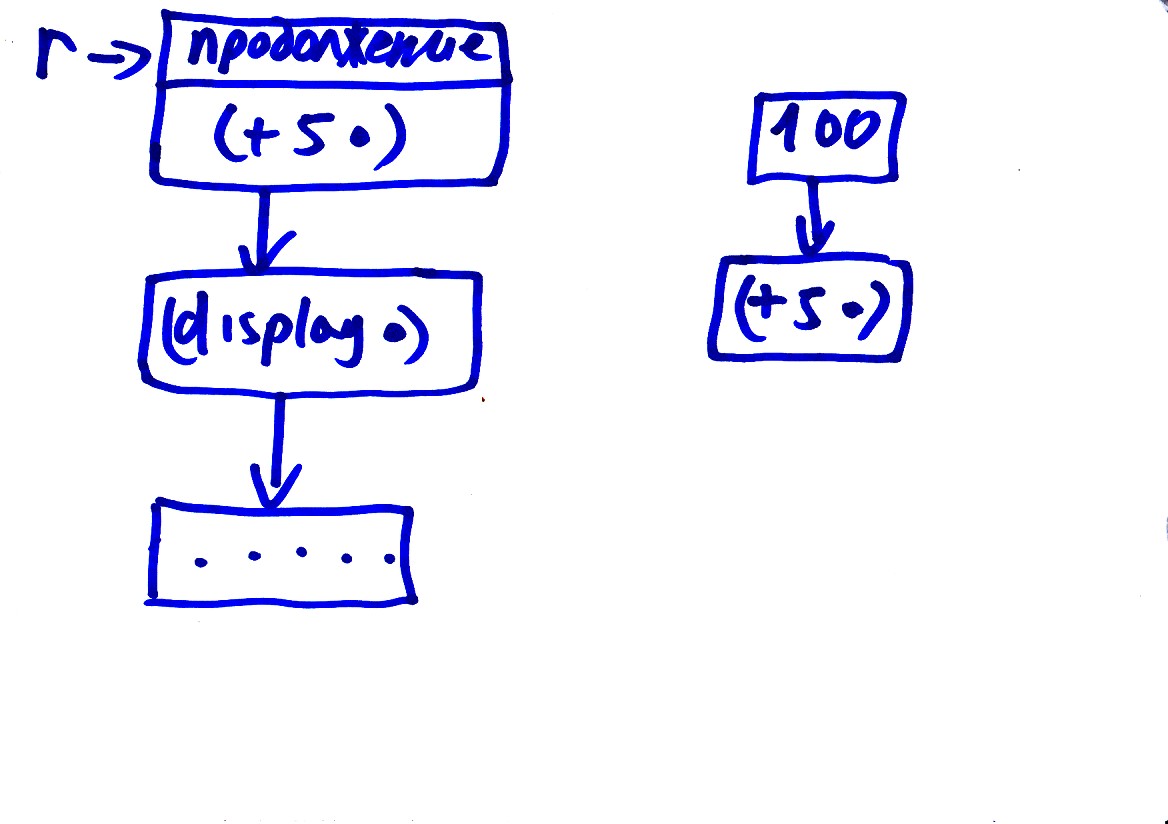 r → продолжение
(+ 5 •)
(display •)
. . . . .
100
(+ 5 •)